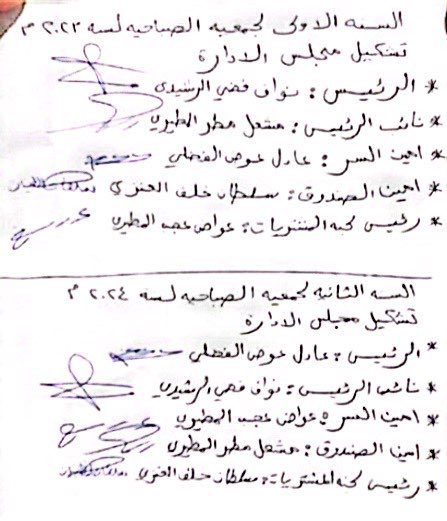 السنه الاولى لجمعيه الصباحيه لسنه ٢٠٢٣ م
تشكيل مجلس الادارة
* الرئيس : نواف فضي الرشيدي
* نائب الرئيس : مشعل مطر المطيري
* امين السر : عادل عوض الفضلي
* امين الصندوق : سلطان خلف العنزي
* رئيس لجنه المشتريات : عواض عجب المطيري
السنه الثانيه لجمعيه الصباحيه لسنه ٢٠٢٤ م
تشكيل مجلس الادارة
* الرئيس : عادل عوض الفضلي
* نائب الرئيس : نواف فضي الرشيدي
* امين السر : عواض عجب المطيري
* امين الصندوق : مشعل مطر المطيري
* رئيس لجنه المشتريات : سلطان خلف العنزي